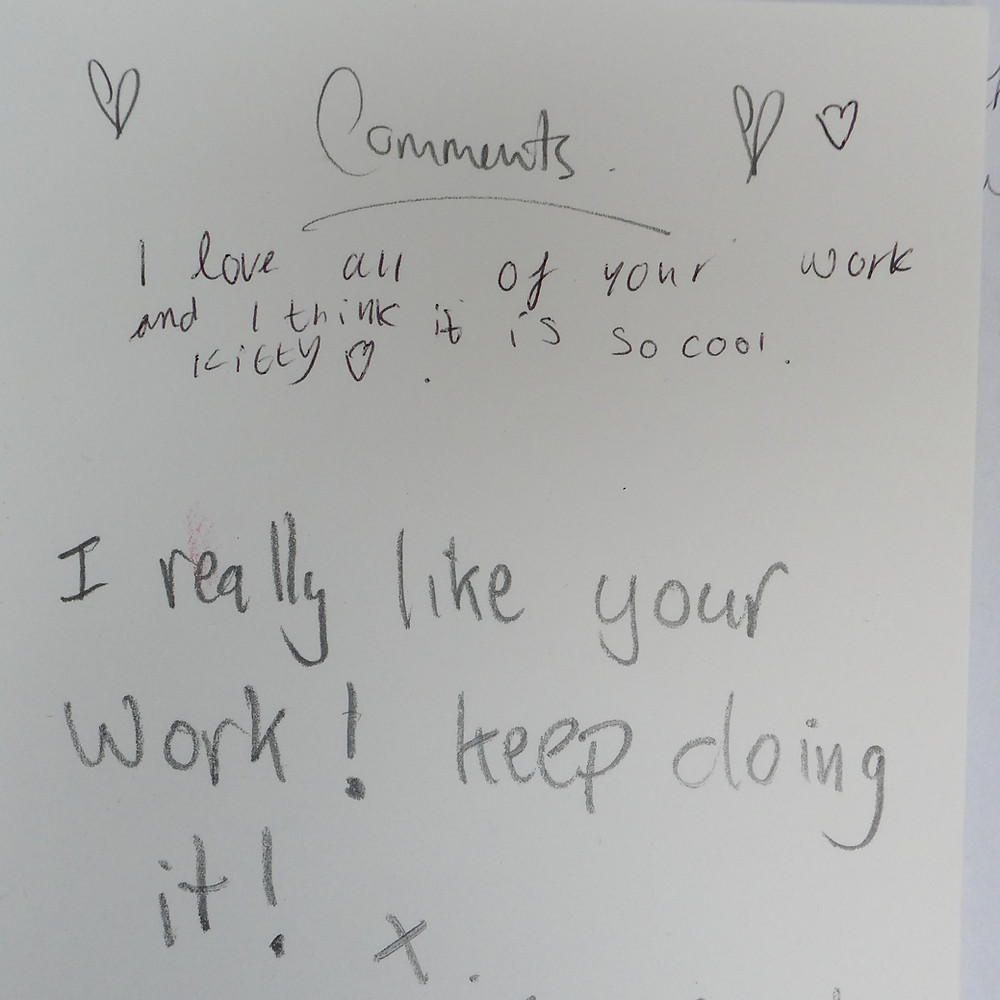 Comments.
I love all of your work
and I think it is so cool.
Kitty ♡.
I really like your
work! keep doing
it! x.